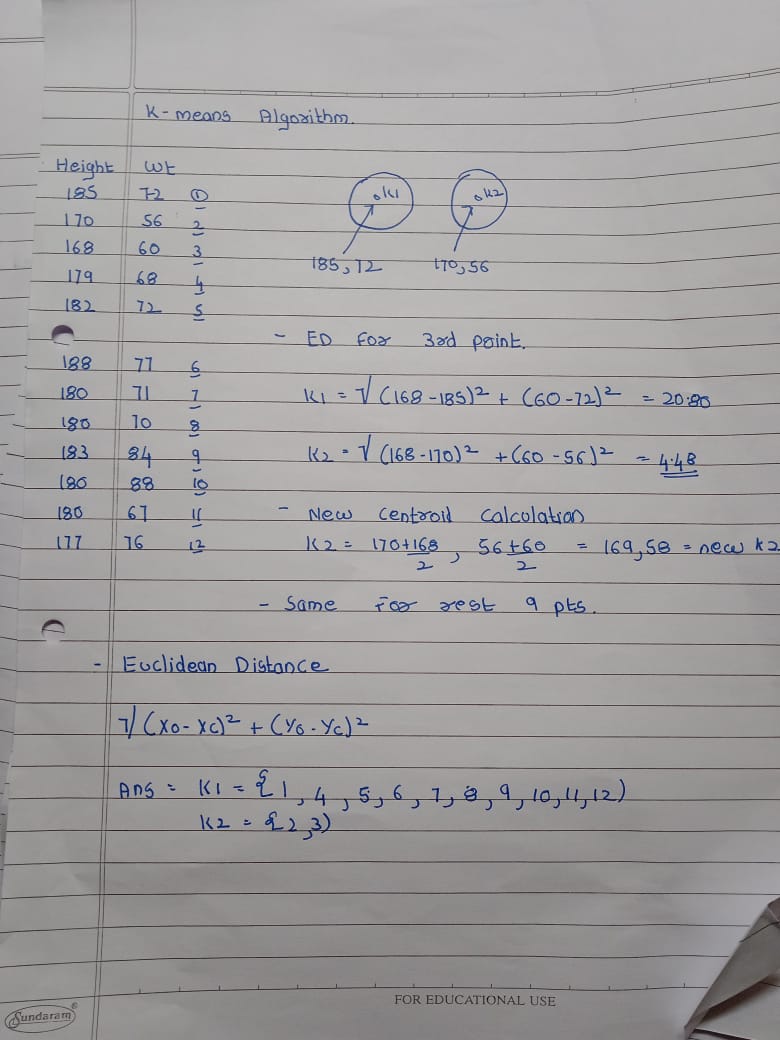 K-means Algorithm.
Height Wt
185 72 1
170 56 2
168 60 3
179 68 4
182 72 5
188 77 6
180 71 7
180 70 8
183 84 9
180 88 10
180 67 11
177 76 12
K1 K2
185,72 170,56
- ED For 3rd point.
K1 = √(168-185)² + (60-72)² = 20.80
K2 = √(168-170)² + (60-56)² = 4.48
- New centroid calculation
K2 = 170+168/2 , 56+60/2 = 169,58 = new k2
- Same For rest 9 pts.
- Euclidean Distance
√(Xo-Xc)² + (Yo-Yc)²
Ans = K1 = {1, 4, 5, 6, 7, 8, 9, 10, 11, 12)
K2 = {2,3)
FOR EDUCATIONAL USE
Sundaram®